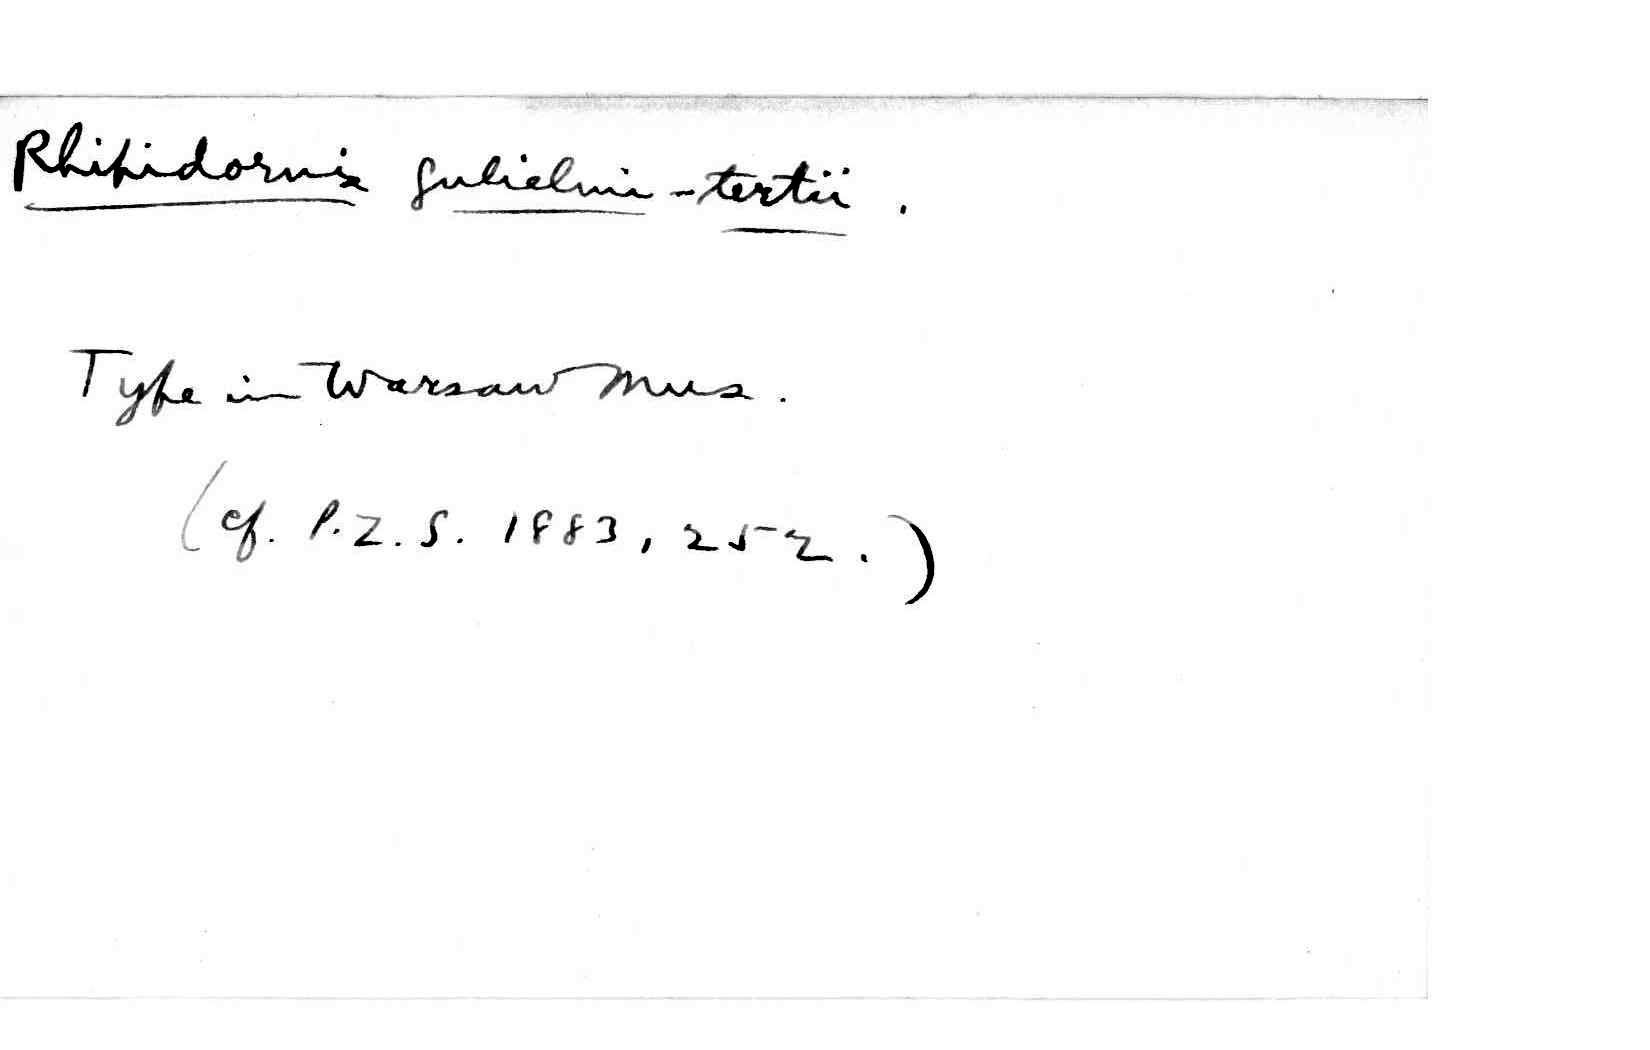 Rhipidornis gulielmi-tertii.
Type in Warsaw Mus.
(cf. P.Z.S. 1883, 252.)